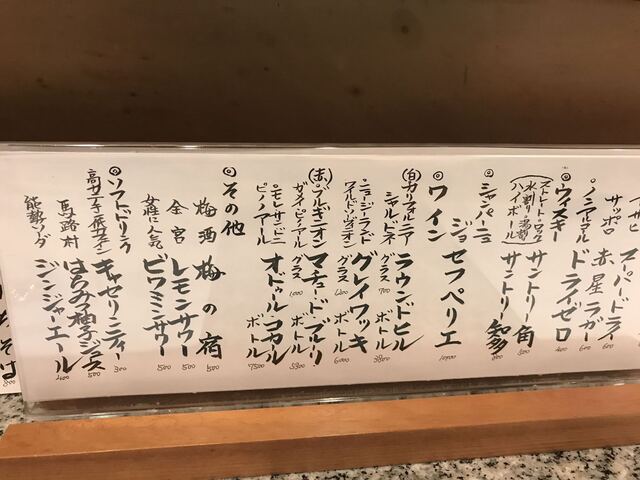 アサヒ スーパードライ 600
サッポロ 赤星ラガー 600
ノンアルコール ドライゼロ 400
◎ウィスキー
ストレート・ロック
水割り・湯割
ハイボール
サントリー角 500
サントリー知多 800
◎シャンパーニュ
ジョセフペリエ 10000
◎ワイン
(白)カリフォルニア
シャルドネ
ラウンドヒル
グラス 700
ボトル 3800
ニュージーランド
ワイルドソーヴィニオン
グレイワッキ
グラス
ボトル 6000
(赤)ブルギニオン
ガメイ・ピノノアール
マチュード・ブルリ
グラス 1000
ボトル 5300
モレサンドニ
ピノノアール
オドゥールコカール
ボトル 7500
◎その他
梅酒 梅の宿 500
金宮 レモンサワー 500
女性に人気 ビワミンサワー 500
◎ソフトドリンク
キャセリンティー 300
馬路村 はちみつ柚子ジュース 500
能勢ソーダ ジンジャーエール 400
そば